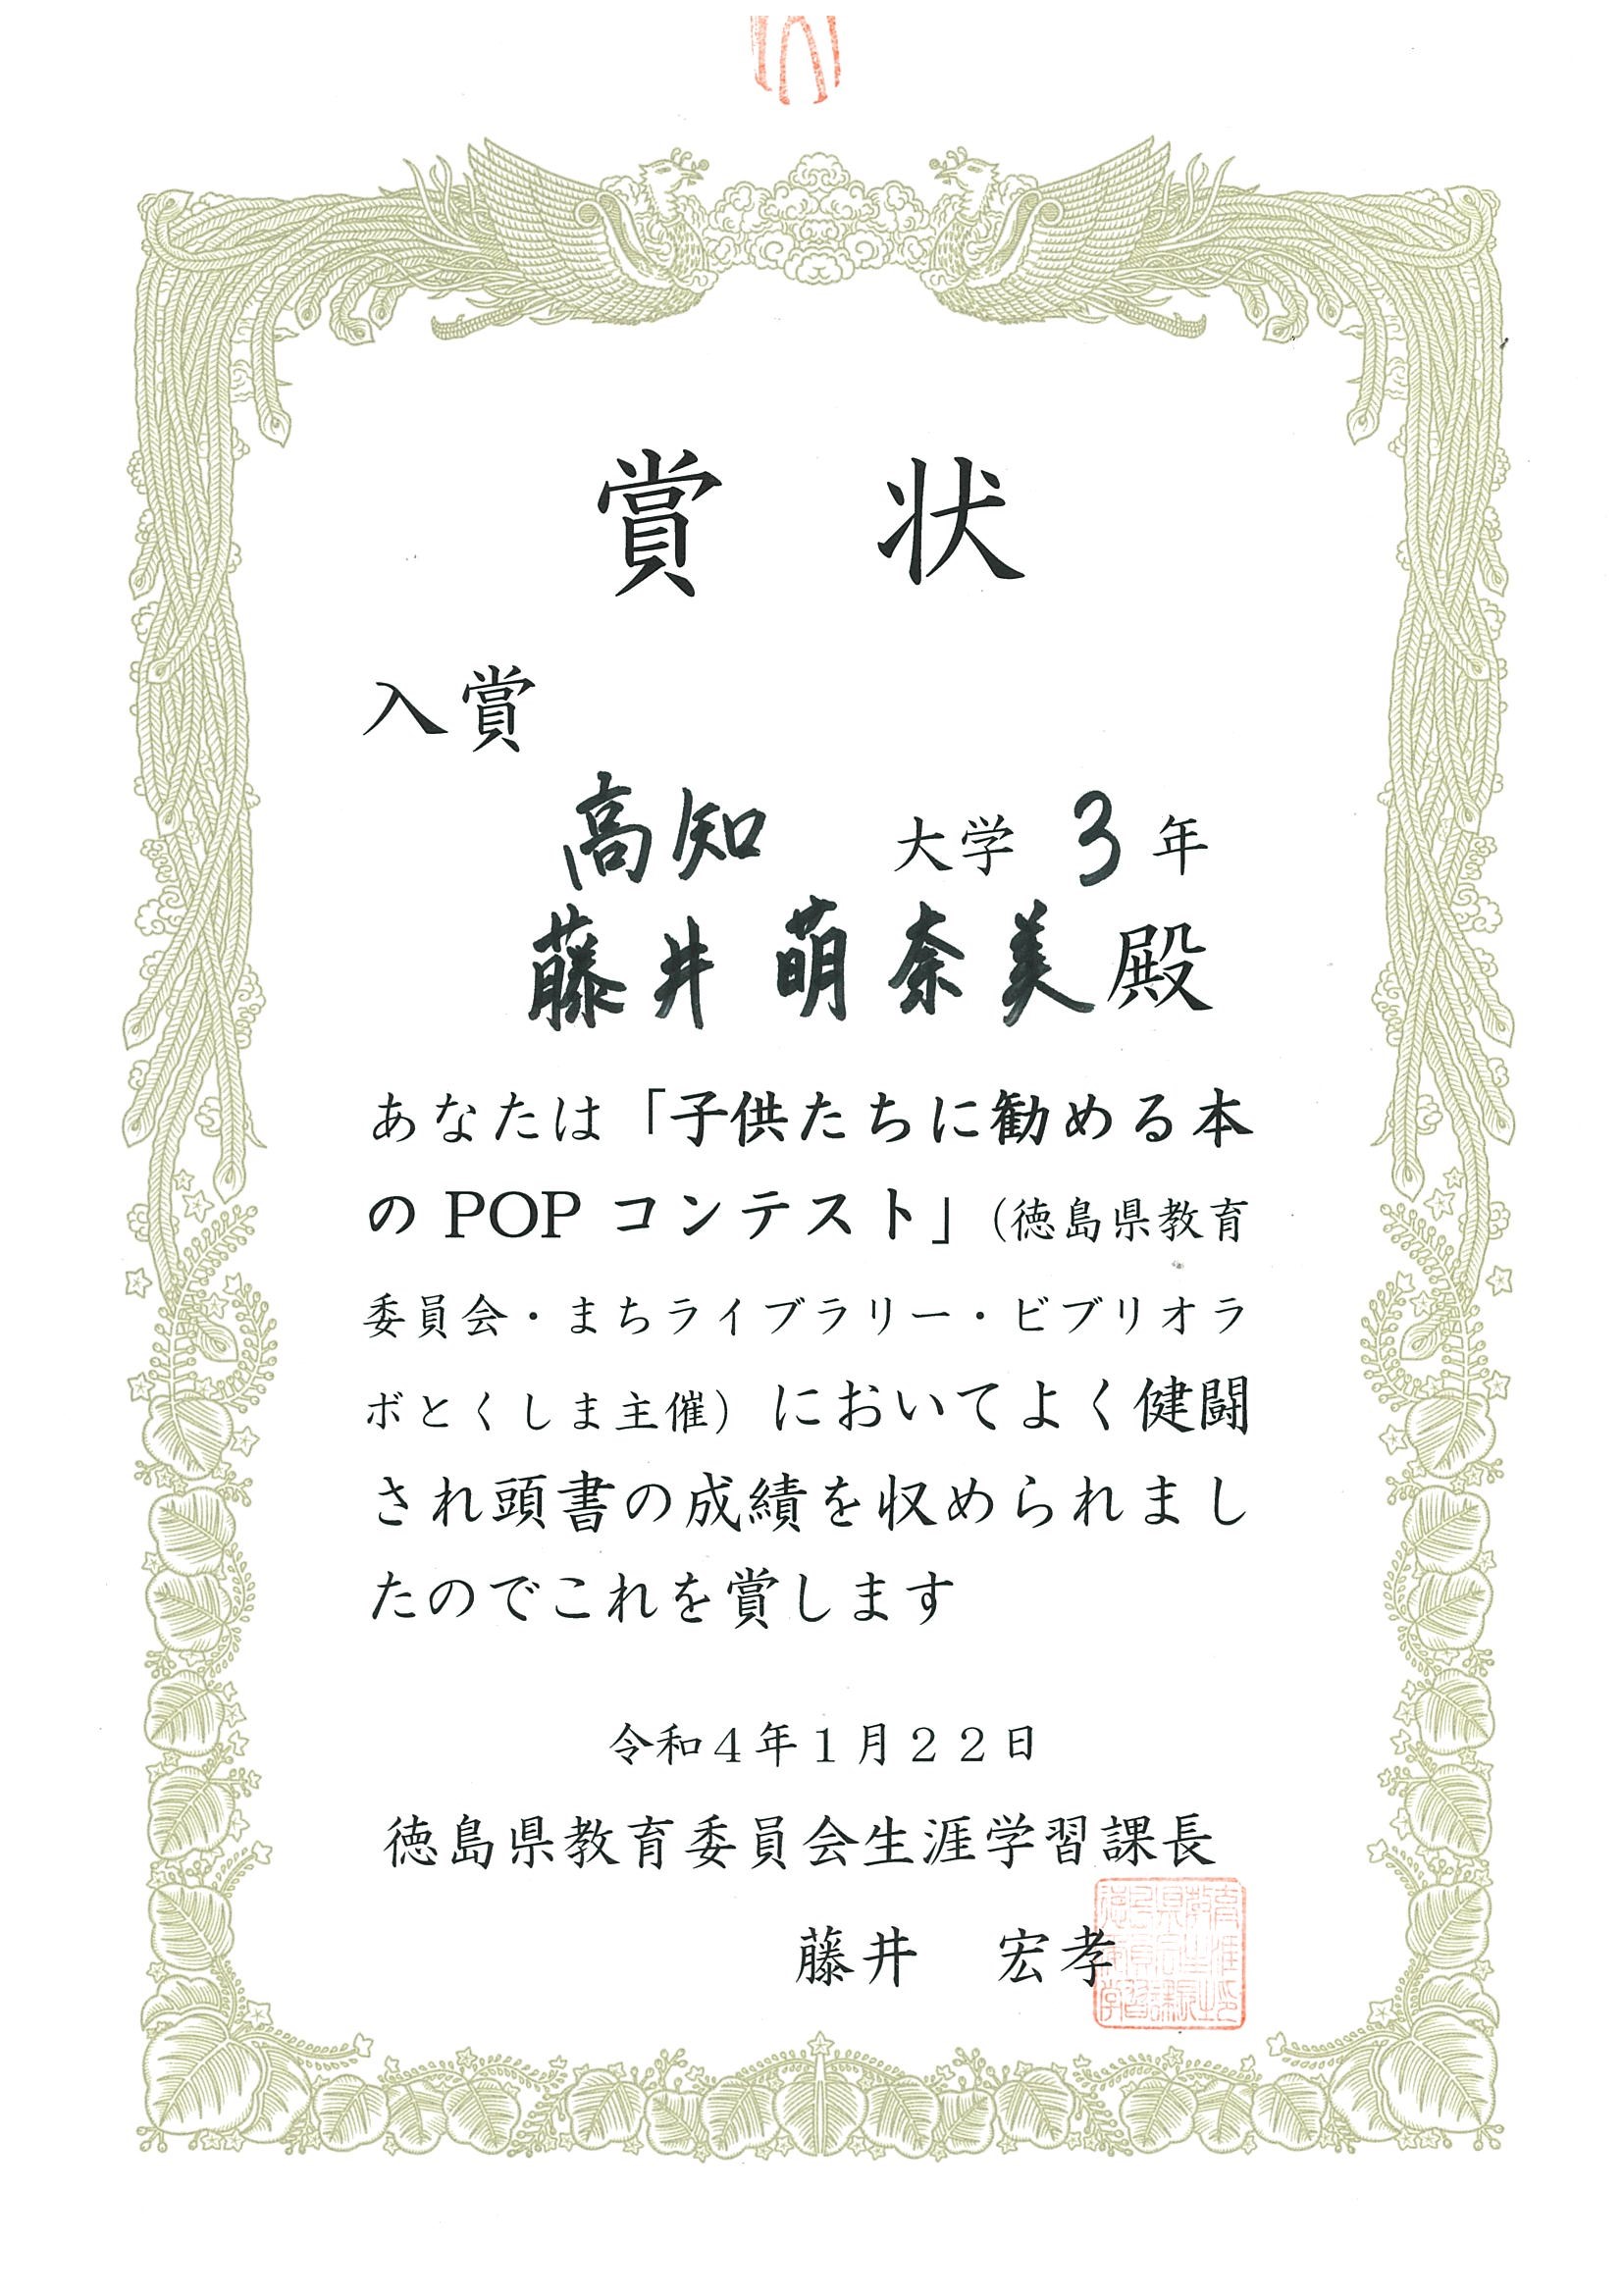 賞 状
入賞
高知 大学 3 年
藤井 萌奈美 殿
あなたは「子供たちに勧める本
の POP コンテスト」（徳島県教育
委員会・まちライブラリー・ビブリオラ
ボとくしま主催）においてよく健闘
され頭書の成績を収められまし
たのでこれを賞します
令和４年１月２２日
徳島県教育委員会生涯学習課長
藤井 宏孝